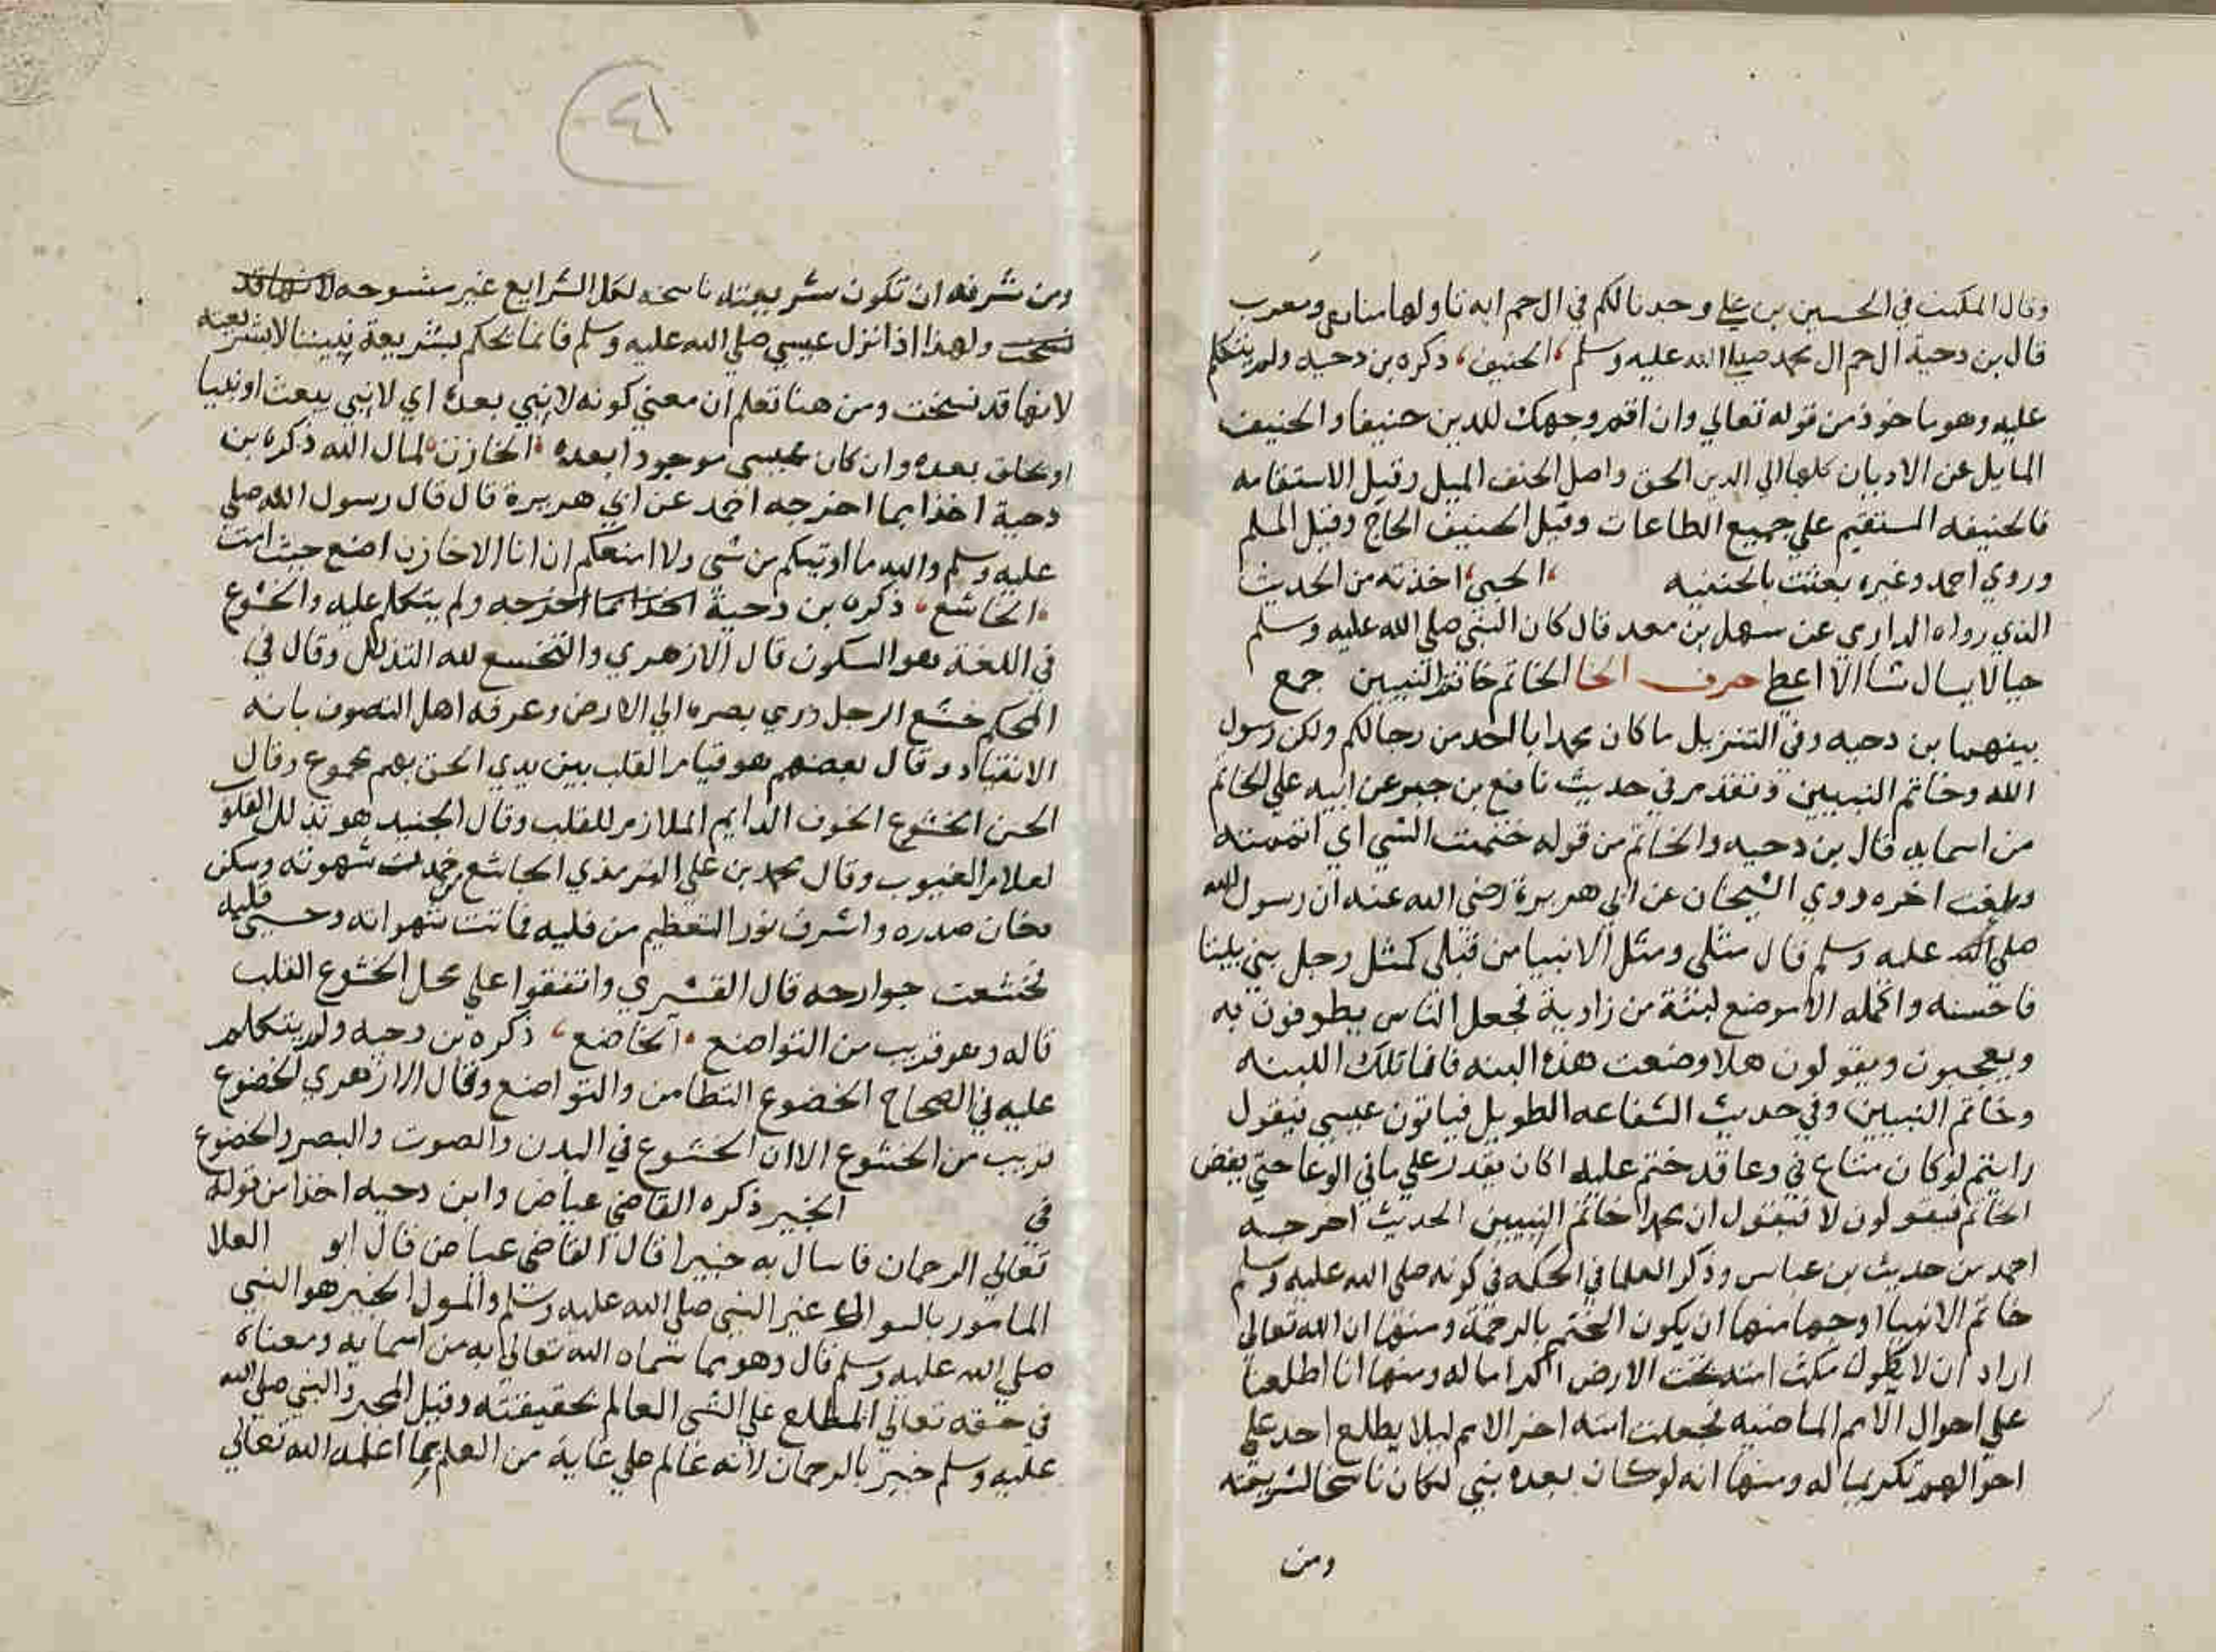 وقال الكميت في الحسين بن علي وجدنا لكم في ال حم اية تاولها منا تقي ومعرب
قال بن دحية ال حم ال محمد صلي الله عليه وسلم الحنيف ذكره بن دحيه ولم يتكلم
عليه وهو ماخوذ من قوله تعالي وان اقم وجهك للدين حنيفا والحنيف
المايل عن الاديان كلها الي الدين الحق واصل الحنف الميل وقيل الاستقامه
فالحنيفه المستقيم علي جميع الطاعات وقيل الحنيف الحاج وقيل المسلم
وروي احمد وغيره بعثت بالحنفيه الحيي اخذته من الحديث
الذي رواه الدارمي عن سهل بن سعد قال كان النبي صلي الله عليه وسلم
حيا لا يسال شيا الا اعطا حرف الخا الخاتم خاتم النبيين جمع
بينهما بن دحيه وفي التنزيل ما كان محمد ابا احد من رجالكم ولكن رسول
الله وخاتم النبيين وتقدم في حديث نافع بن جبير عن ابيه علي الخاتم
من اسمايه قال بن دحيه والخاتم من قوله ختمت الشي اي اتممته
وبلغت اخره روي الشيخان عن ابي هريرة رضي الله عنه ان رسول الله
صلي الله عليه وسلم قال مثلي ومثل الانبيا من قبلي كمثل رجل بني بيتا
فاحسنه واكمله الا موضع لبنة من زاوية فجعل الناس يطوفون به
ويعجبون ويقولون هلا وضعت هذه البنه فانا تلك اللبنه
وخاتم النبيين وفي حديث الشفاعه الطويل فياتون عيسي فيقول
رايتم لو كان متاع في وعا قد ختم عليه اكان يقدر علي ما في الوعا حتي يفض
الخاتم فيقولون لا فيقول ان محمدا خاتم النبيين الحديث اخرجه
احمد من حديث بن عباس وذكر العلما في الحكمه في كونه صلي الله عليه وسلم
خاتم الانبيا اوجها منها ان يكون الختم بالرحمة ومنها ان الله تعالي
اراد ان لا يطول مكث امته تحت الارض اكراما له ومنها انا اطلعنا
علي احوال الامم الماضيه فجعلت امته اخر الامم ليلا يطلع احد علي
احوالهم تكريما له ومنها انه لو كان بعده نبي لكان ناسخا لشريعته
ومن
٤١
ومن شرفه ان تكون شريعته ناسخه لكل الشرايع غير منسوخه لانها قد
نسخت ولهذا اذا نزل عيسي صلي الله عليه وسلم فانما يحكم بشريعة نبينا لا بشريعته
لانها قد نسخت ومن هنا تعلم ان معني كونه لا نبي بعده اي لا نبي يبعث او نبيا
او يخلق بعده وان كان عيسي موجودا بعده الخازن لمال الله ذكره بن
دحية اخذا مما اخرجه احمد عن ابي هريرة قال قال رسول الله صلي
عليه وسلم والله ما اوتيكم من شي ولا امنعكم ان انا الا خازن اضع حيث امرت
الخاشع ذكره بن دحية اخذا مما اخرجه ولم يتكلم عليه والخشوع
في اللغة هو السكون قال الازهري والتخشع لله التذلل وقال في
المحكم خشع الرجل رمي بصره الي الارض وعرفه اهل التصوف بانه
الانقياد وقال بعضهم هو قيام القلب بين يدي الحق بهم مجموع وقال
الحسن الخشوع الخوف الدايم الملازم للقلب وقال الجنيد هو تذلل القلوب
لعلام الغيوب وقال محمد بن علي الترمذي الخاشع من خمدت شهوته وسكن
دخان صدره واشرف نور التعظيم من قلبه فماتت شهواته وحيي قلبه
فخشعت جوارحه قال القشيري واتفقوا علي محل الخشوع القلب
قاله وهو قريب من التواضع الخاضع ذكره بن دحيه ولم يتكلم
عليه في الصحاح الخضوع التطامن والتواضع وقال الازهري الخضوع
قريب من الخشوع الا ان الخشوع في البدن والصوت والبصر والخضوع
في الخبير ذكره القاضي عياض وابن دحيه اخذا من قوله
تعالي الرحمان فاسال به خبيرا قال القاضي عياض قال ابو العلا
المامور بالسوال غير النبي صلي الله عليه وسلم والمسول الخبير هو النبي
صلي الله عليه وسلم قال وهو مما سماه الله تعالي به من اسمايه ومعناه
في حقه تعالي المطلع علي الشي العالم بحقيقته وقيل المخبر والنبي صلي الله
عليه وسلم خبير بالرحمان لانه عالم علي غاية من العلم بما اعلمه الله تعالي